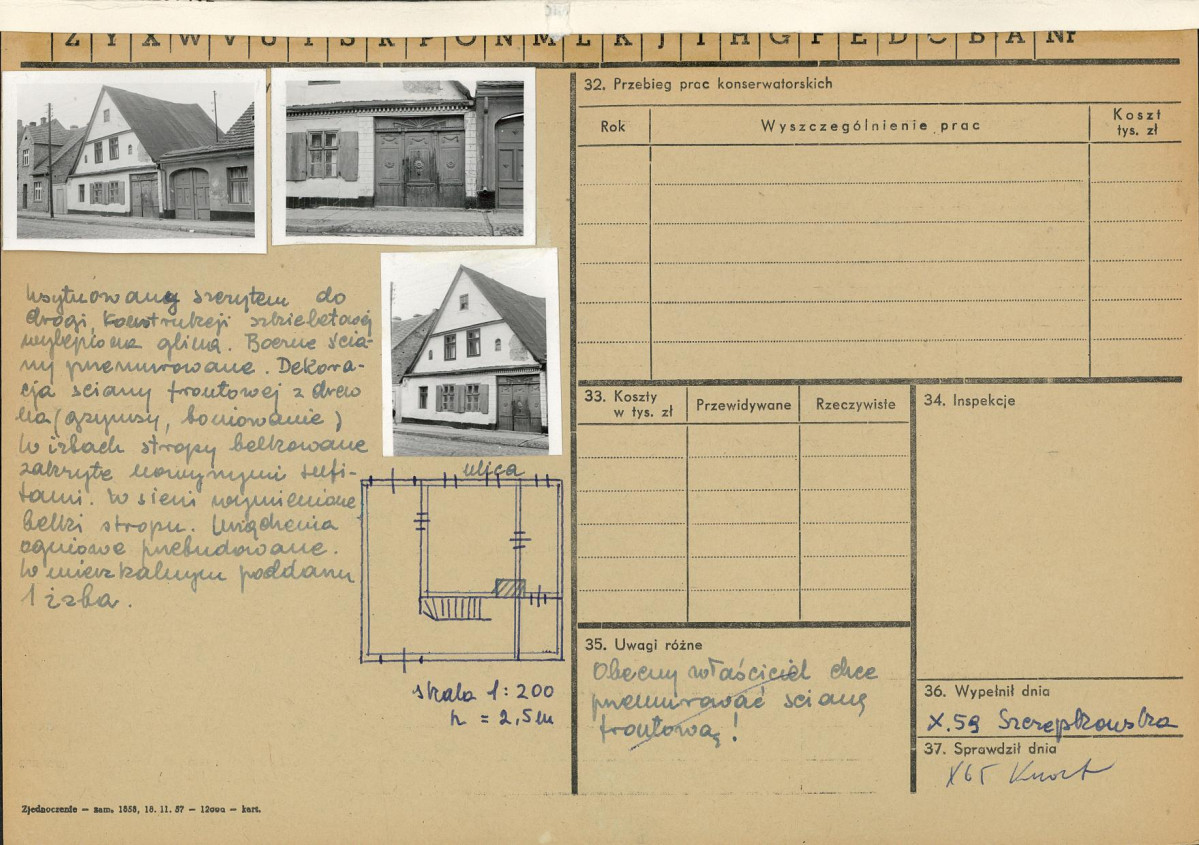 Z Y X W V U T S R P O N M L K J I H G F E D C B A Nr
Usytuowany szczytem do
drogi, konstrukcji szkieletowej
wylepiona gliną. Boczne ścia-
ny przemurowane. Dekora-
cja ściany frontowej z drew
na (gzymsy, boniowanie)
W izbach stropy belkowane
zakryte nowymi sufi-
tami. W sieni wymienione
belki stropu. Urządzenia
ogniowe przebudowane.
W mieszkalnym poddaszu
1 izba.
ulica
skala 1:200
h = 2,5m
Zjednoczenie — zam. 1858, 18. 11. 57 — 12000 — kart.
32. Przebieg prac konserwatorskich
Rok
Wyszczególnienie prac
Koszt
tys. zł
33. Koszty
w tys. zł
Przewidywane
Rzeczywiste
34. Inspekcje
35. Uwagi różne
Obecny właściciel chce
przemurować ścianę
frontową!
36. Wypełnił dnia
X.59 Szczepkowska
37. Sprawdził dnia
X65